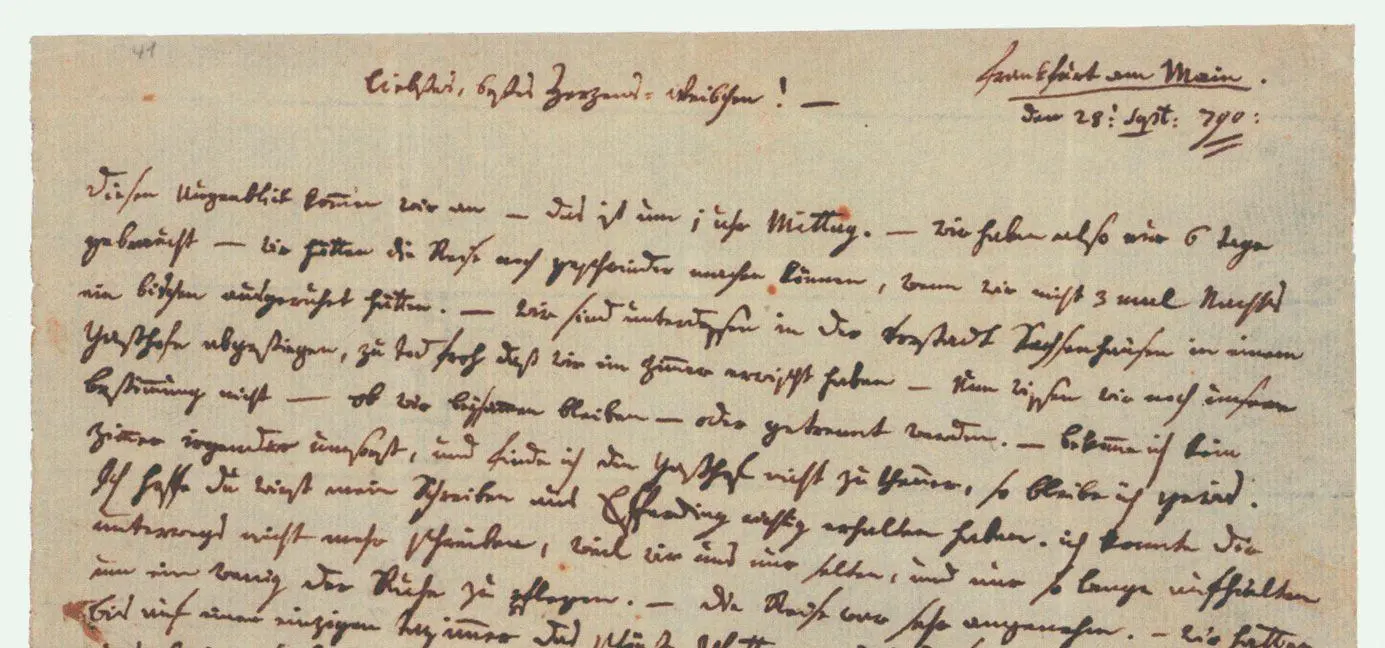 41
frankfurt am Main.
liebstes, bestes Herzens-Weibchen! —
den 28:t Sept: 790:
diesen Augenblick kommen wir an — das ist um 1 uhr Mittag. — wir haben also nur 6 tage
gebraucht — wir hätten die Reise noch geschwinder machen können, wenn wir nicht 3 mal Nachts
ein bischen ausgeruhet hätten. — wir sind unterdessen in der vorstadt Sachsenhausen in einem
gasthofe abgestiegen, zu tod froh daß wir ein zimmer erwischt haben — Nun wissen wir noch unsere
bestimmung nicht — ob wir beysammen bleiben — oder getrennt werden. — bekomme ich kein
zimmer irgendwo umsonst, und finde ich die gasthöfe nicht zu theuer, so bleibe ich gewis.
Ich hoffe du wirst mein Schreiben aus Efferding richtig erhalten haben. ich konnte dir
unterwegs nicht mehr schreiben, weil wir uns nur selten, und nur so lange aufhielten
um ein wenig der Ruhe zu pflegen. — die Reise war sehr angenehm. — wir hatten
bis auf einen einzigen tag immer das schönste